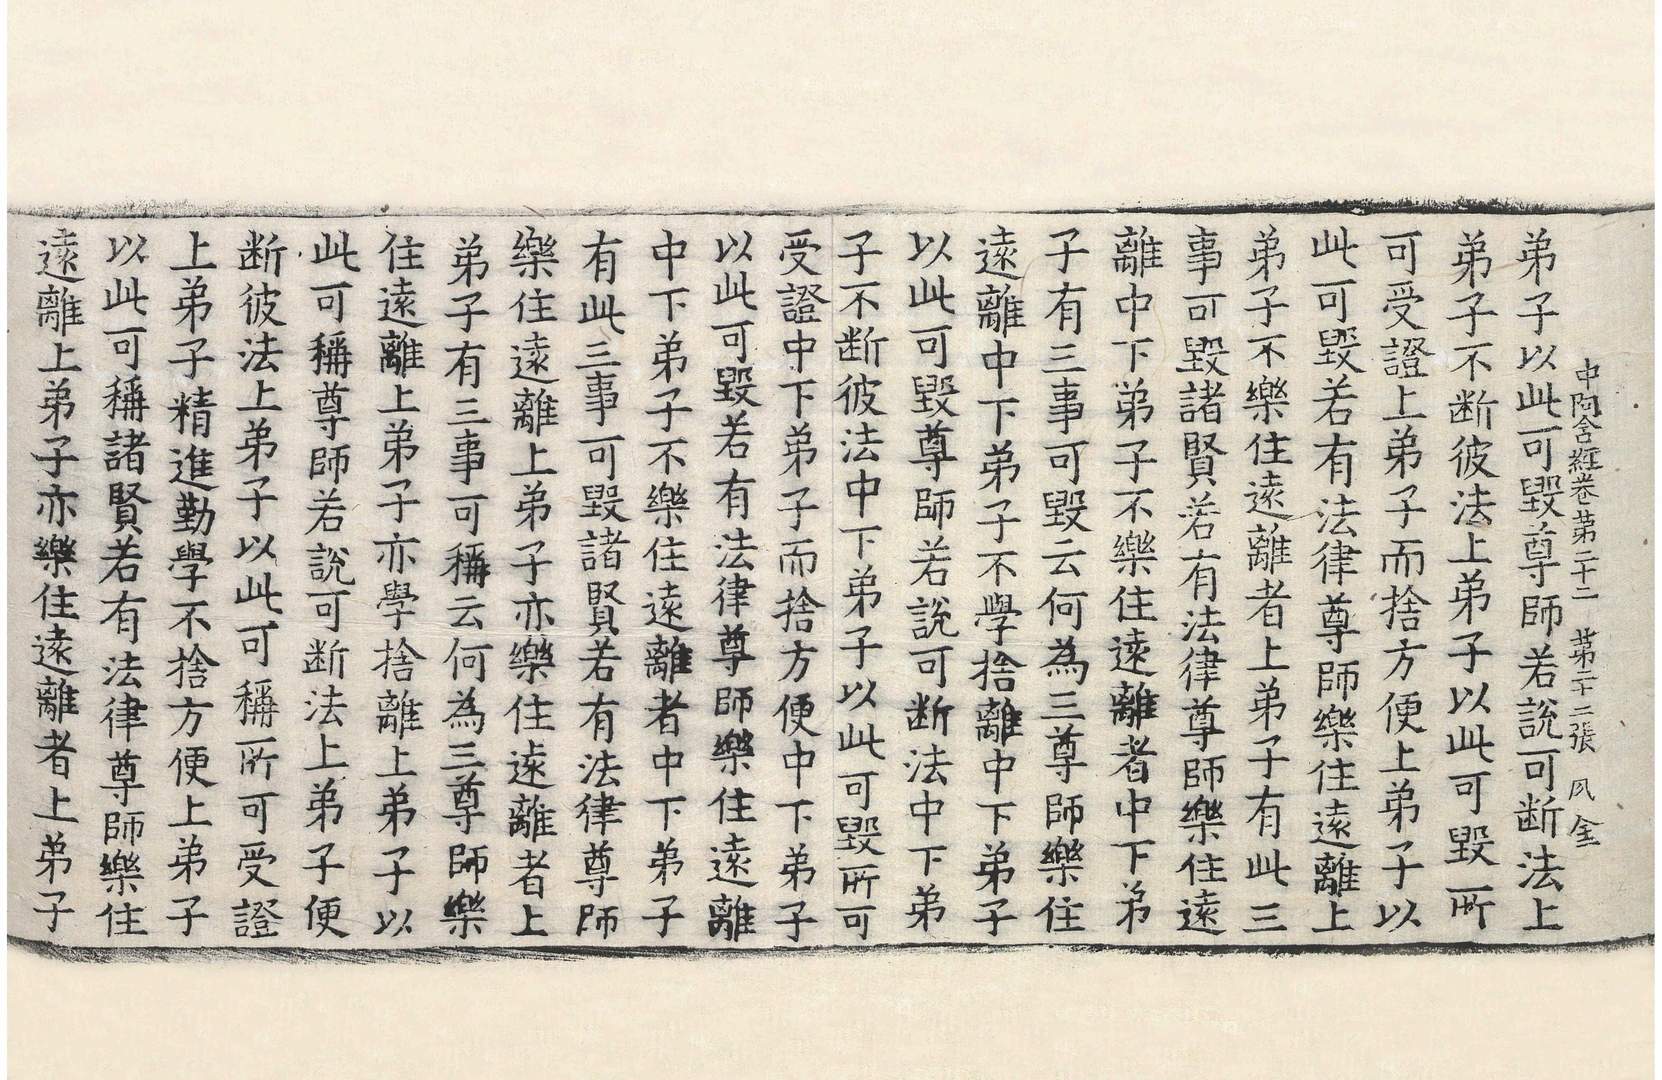 中阿含經卷第二十二 第二十二張 夙 金
弟子以此可毀尊師若說可断法上
弟子不断彼法上弟子以此可毀所
可受證上弟子而捨方便上弟子以
此可毀若有法律尊師樂住遠離上
弟子不樂住遠離者上弟子有此三
事可毀諸賢若有法律尊師樂住遠
離中下弟子不樂住遠離者中下弟
子有三事可毀云何為三尊師樂住
遠離中下弟子不學捨離中下弟子
以此可毀尊師若說可断法中下弟
子不断彼法中下弟子以此可毀所可
受證中下弟子而捨方便中下弟子
以此可毀若有法律尊師樂住遠離
中下弟子不樂住遠離者中下弟子
有此三事可毀諸賢若有法律尊師
樂住遠離上弟子亦樂住遠離者上
弟子有三事可稱云何為三尊師樂
住遠離上弟子亦學捨離上弟子以
此可稱尊師若說可断法上弟子便
断彼法上弟子以此可稱所可受證
上弟子精進勤學不捨方便上弟子
以此可稱諸賢若有法律尊師樂住
遠離上弟子亦樂住遠離者上弟子